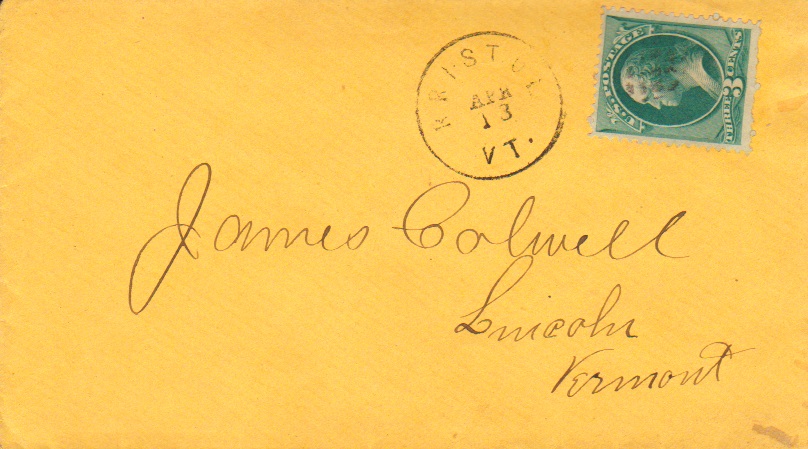 BRISTOL
APR
13
VT.
U.S. POSTAGE
THREE 3 CENTS
James Colwell
Lincoln
Vermont